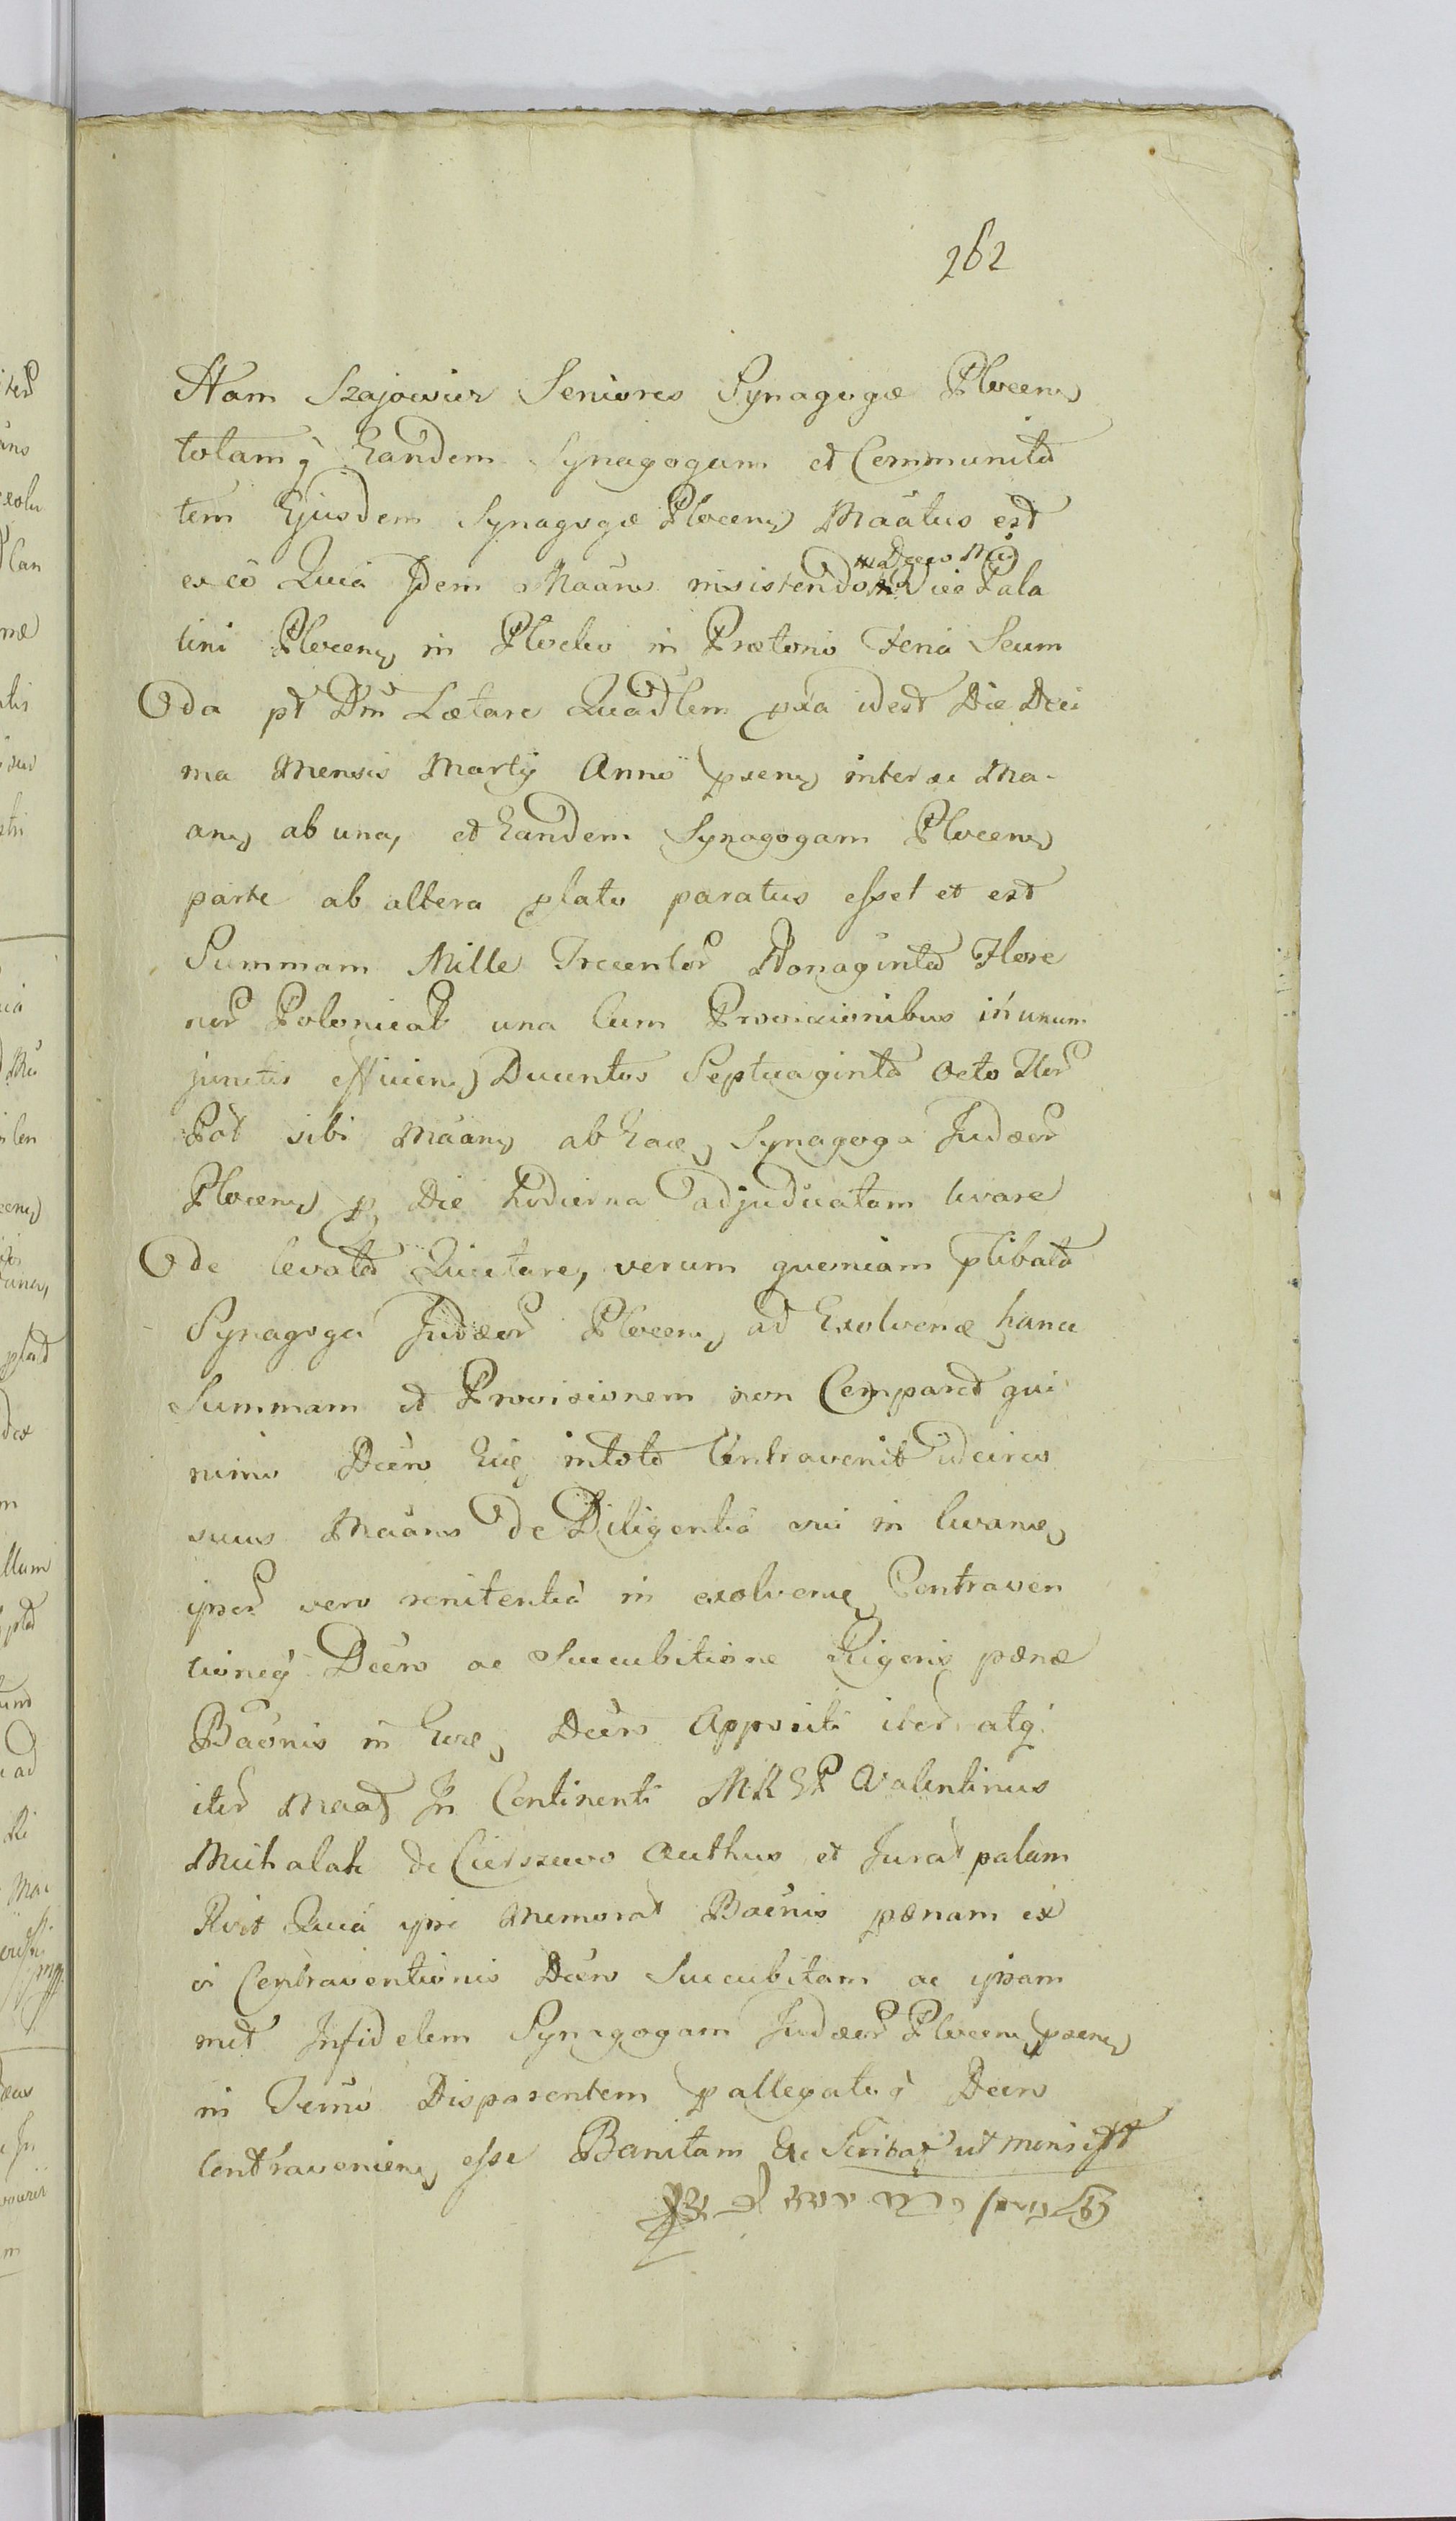 262
Ham Szajowicz Seniores Synagogæ Plocens
totamq̃ Eandem Synagogam et Communita
tem Ejusdem Synagogæ Plocens Maãtus est
ex eo Quia Idem Maãns insistendo Decro Vice Pala
tini Plocens in Plocko in Prætorio Feria Scum
da pt Dm̃ Lætare Quadlem pxa idest Die Deci
ma Mensis Martij Anno psens inter se Ma-
ans ab una, et Eandem Synagogam Plocens
parte ab altera plato paratus esset et est
Summam Mille Trecentor Nonaginta Flore
nor Polonical una Cum Provisionibus in unum
junctis efficiens Ducentos Septuaginta octo Flor
Pol sibi Maans ab Eade Synagoga Judæor
Plocens p Die hodierna adjudicatam levare
de levata Quietare, verum quoniam plibata
Synagoga Judæor Plocens ad Exolvend hanc
Summam et Provisionem non Comparet qui
nimo Decro Eid intoto Contravenit idcirco
suus Maãns de Diligentia sui in levand
ipsor vero renitentia in exolvend Contraven
tioneq̃ Decro ac Succubitione Rigoris pænæ
Baõnis in Eod Decro Appositi iter atq
iter Maat In Continenti MRGP Valentinus
Michalak de Cierszewo Authus et Jurat palam
Rvit Quia ipse Memorat Baõnis pænam ex
vi Contraventionis Decro Succubitam ac ipsam
met Infidelem Synagogam Judæor Plocens psens
in Termo Disparentem p allegato Decro
Contraveniens esse Banitam &c Scribat ut moris est